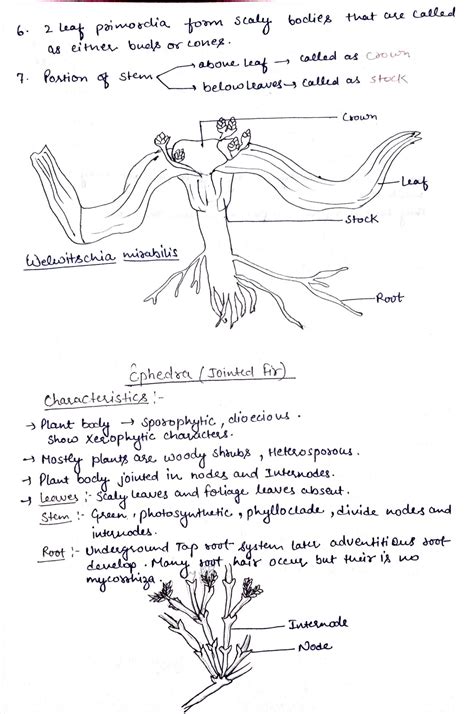 6. 2 leaf primordia form scaly bodies that are called
as either buds or cones.
7. Portion of stem → above leaf → called as Crown
→ below leaves → called as Stock
Crown
Leaf
Stock
Welwitschia mirabilis
Root
Ephedra (Jointed Fir)
Characteristics :-
→ Plant body → Sporophytic, dioecious.
Show Xerophytic characters.
→ Mostly plants are woody shrubs, Heterosporous.
→ Plant body jointed in nodes and Internodes.
→ Leaves :- Scaly leaves and foliage leaves absent.
Stem :- Green, photosynthetic, phylloclade, divide nodes and
internodes.
Root :- Underground Tap root system later adventitious root
develop. Many root hair occur but their is no
mycorrhiza.
Internode
Node